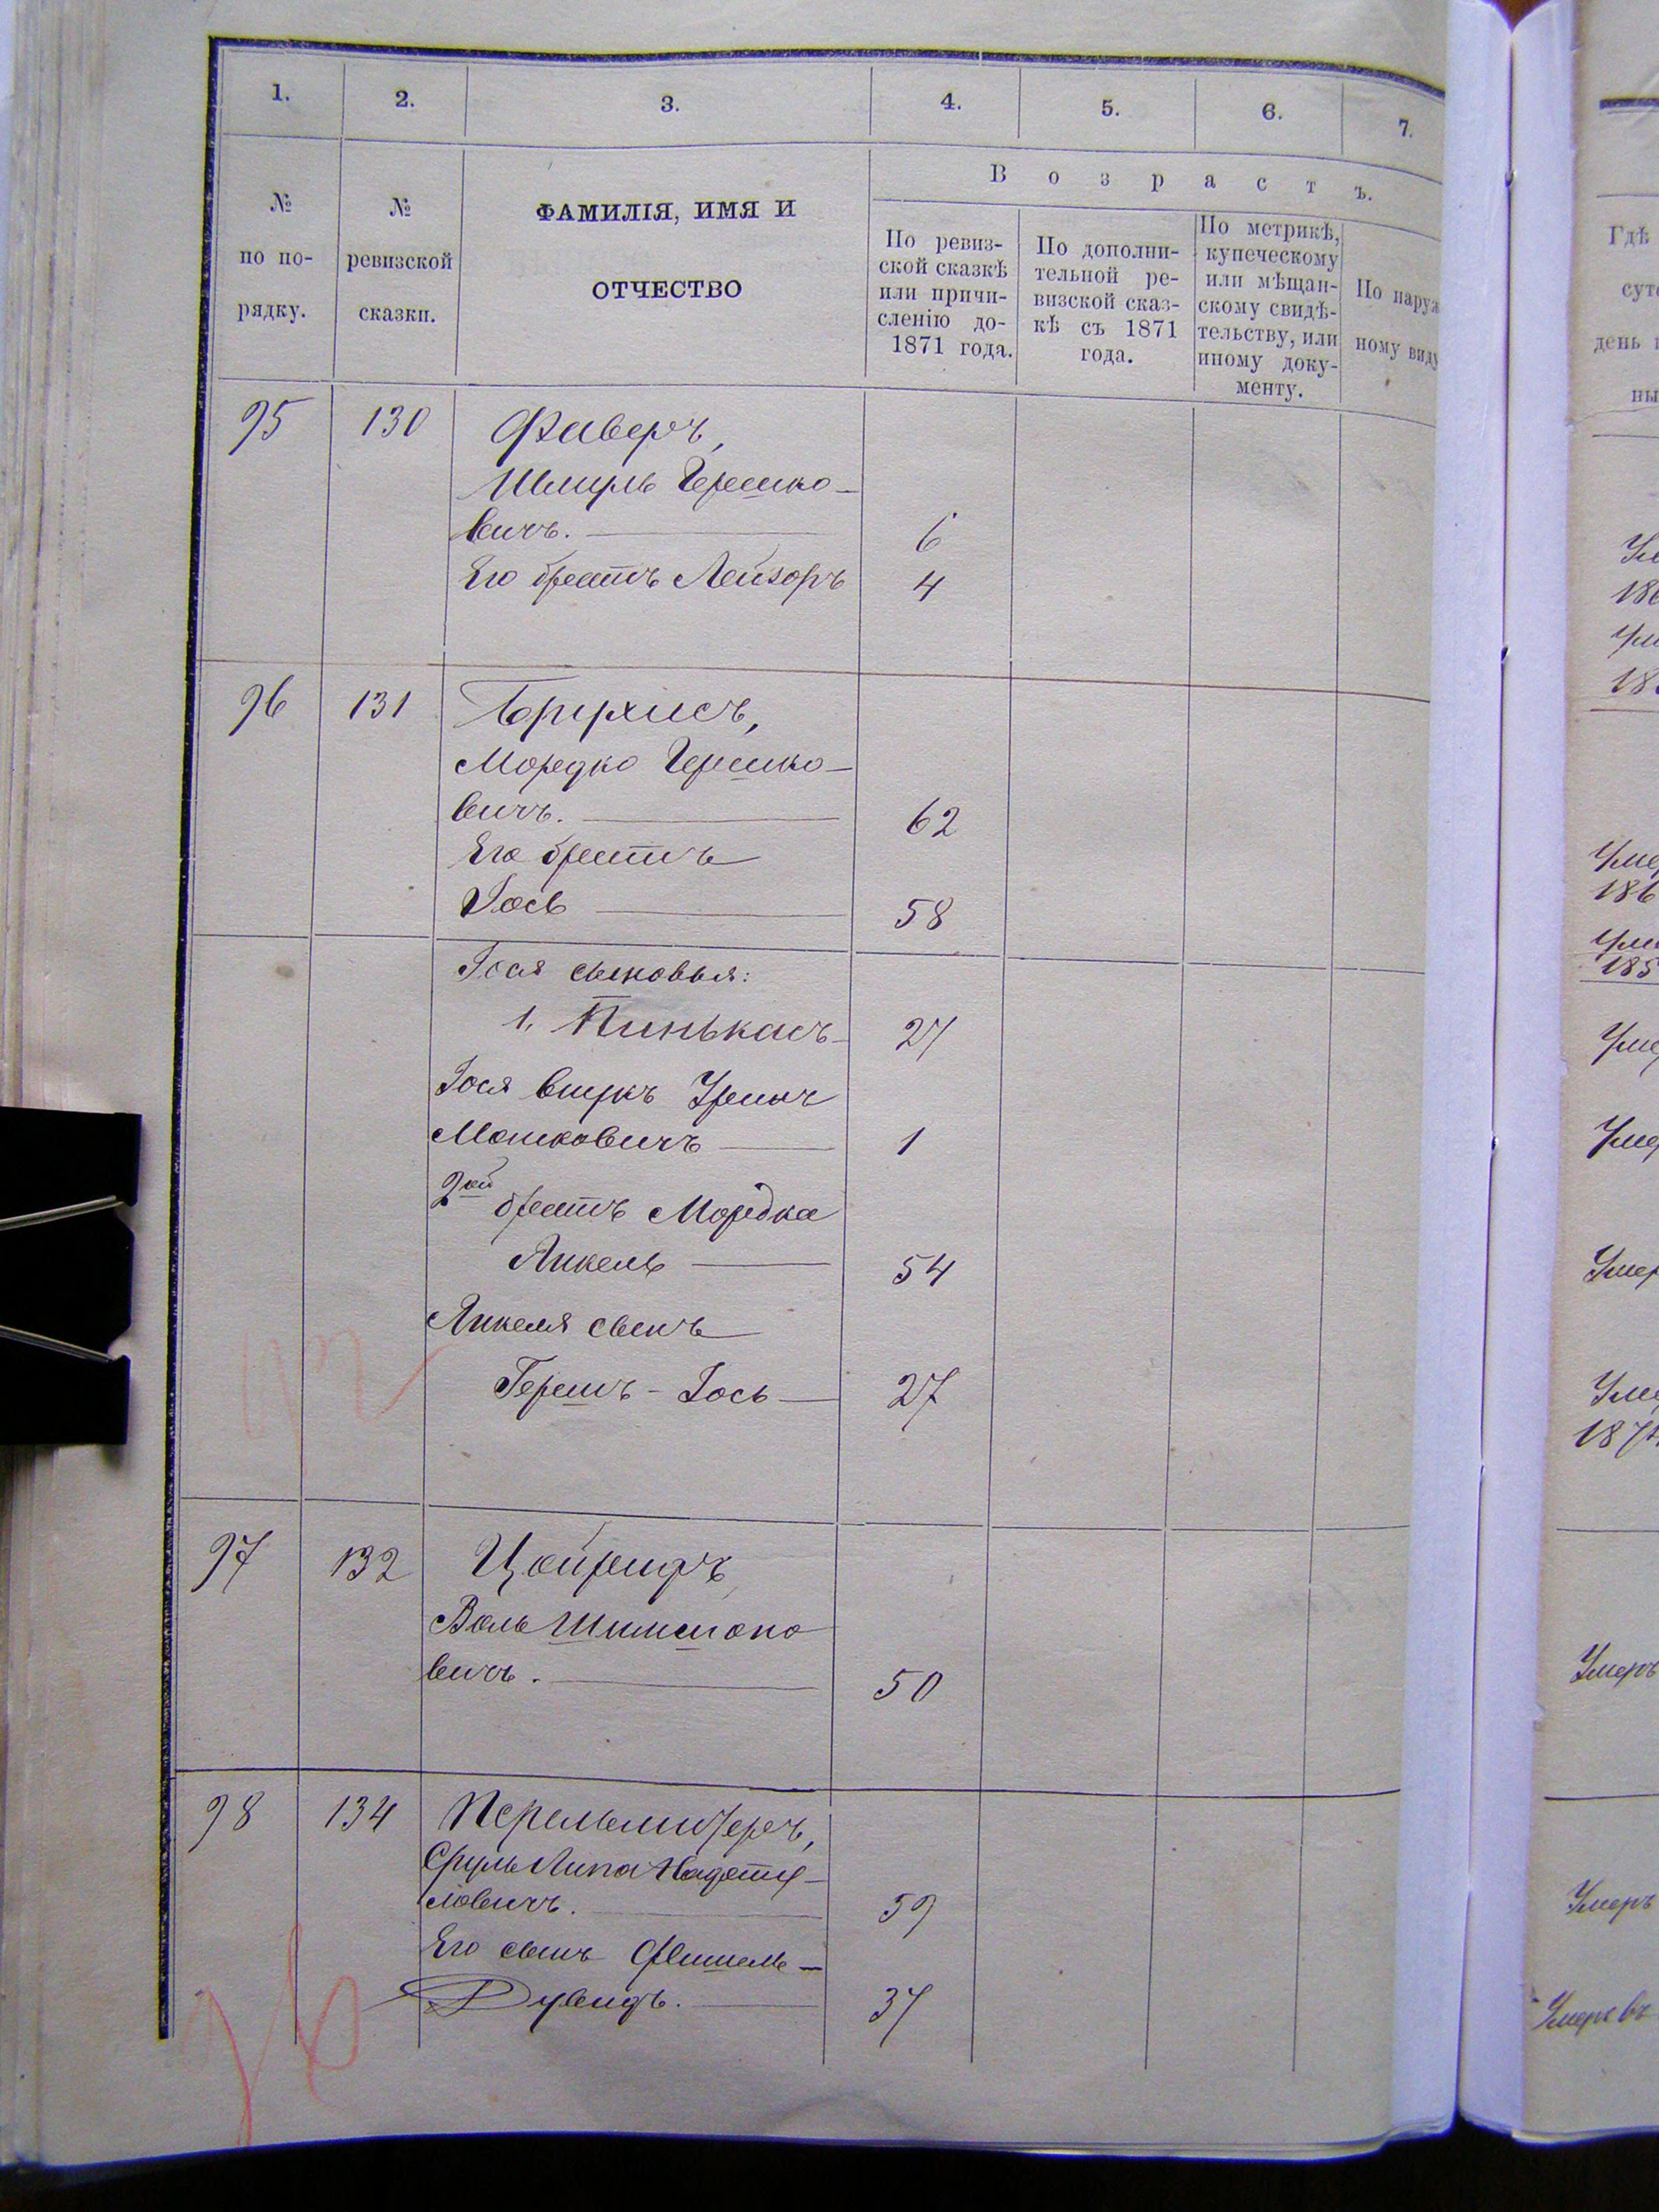 1. 2. 3. 4. 5. 6. 7.
В о з р а с т ъ.
№ по по-рядку.
№ ревизской сказки.
ФАМИЛІЯ, ИМЯ И
ОТЧЕСТВО
По ревиз-
ской сказкѣ
или причи-
сленію до-
1871 года.
По дополни-
тельной ре-
визской сказ-
кѣ съ 1871
года.
По метрикѣ,
купеческому
или мѣщан-
скому свидѣ-
тельству, или
иному доку-
менту.
По наруж
ному виду
95 130 Фаверъ,
Шмуль Гершко-
вичъ. 6
Его братъ Лейзоръ 4
96 131 Брухисъ,
Мордко Гершко-
вичъ. 62
Его братъ
Іось 58
Іося сыновья:
1, Пинькасъ 27
Іося внукъ
Мошковичъ 1
2ой братъ Мордка
Янкель 54
Янкеля сынъ
Гершъ-Іось 27
97 132
Воль Шимшоно
вичъ. 50
98 134 Перельмитеръ,
Сруль Липа
ловичъ. 59
Его сынъ Фишель-
Дувидъ. 37
Гдѣ
день
Умер
186
Умер
185
Умер
Умер
Умер
Умер
1874
Умеръ
Умеръ
Умеръ въ